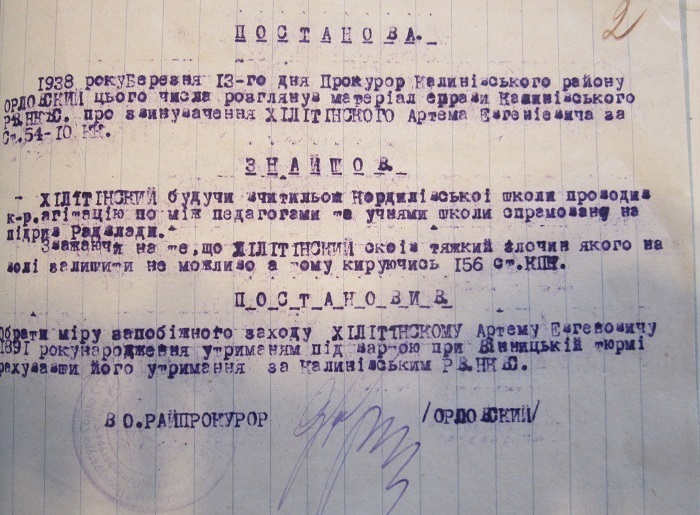 2
ПОСТАНОВА.
1938 рокуБерезня 13-го дня Прокурор Калинівського району
ОРЛОВСКИЙ цього числа розглянув матеріал справи Калинівського
РВ.НКВС. про звинувачення ХІЛІТІНСКОГО Артема Евгеніевича за
Ст.54-10 КК.
ЗНАЙШОВ.
- ХІЛІТІНСКИЙ будучи вчитильом Кордилівської школи проводив
к-р.агітацію по між педагогами та учнями школи спрамовану на
підрив Радвлади.
Зважаючи на те,що ХІЛІТІНСКИЙ скоів тяжкий злочин якого на
волі залишити не можливо а тому кируючись 156 ст.КПК.
ПОСТАНОВИВ
Обрати міру запобіжного заходу ХІЛІТІНСКОМУ Артему Евгеновичу
1891 рокународження утриманям під вартою при Вінницькій тюрмі
рахувавши його утримання за Калинівським РВ.НКВС.
ВО.РАЙПРОКУРОР /ОРЛОВСКИЙ/